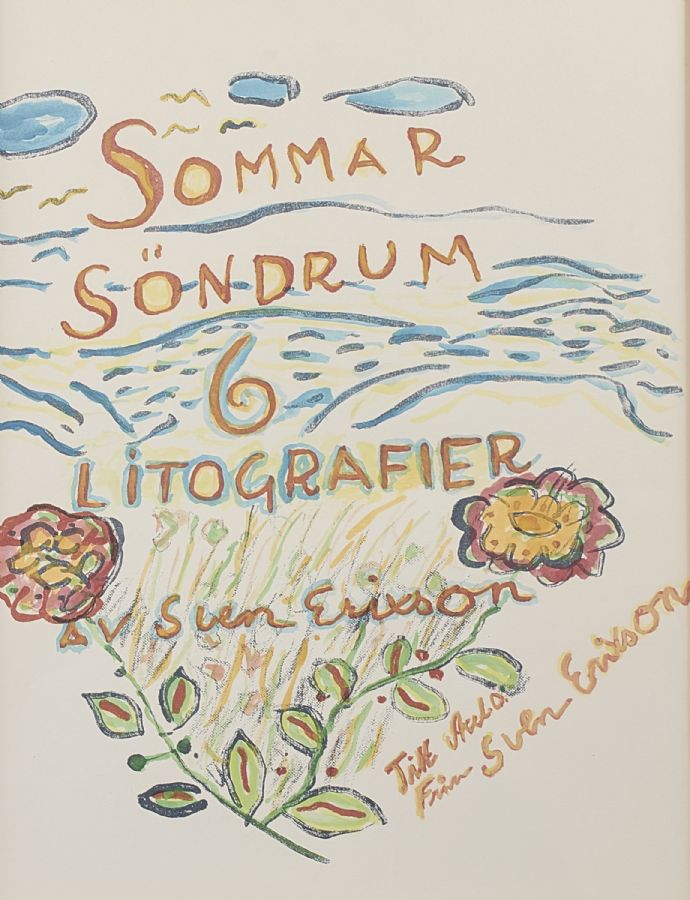 SOMMAR
SÖNDRUM
6
LiTOGRAFIER
AV Sven Erixson
Till
Från Sven Erixson